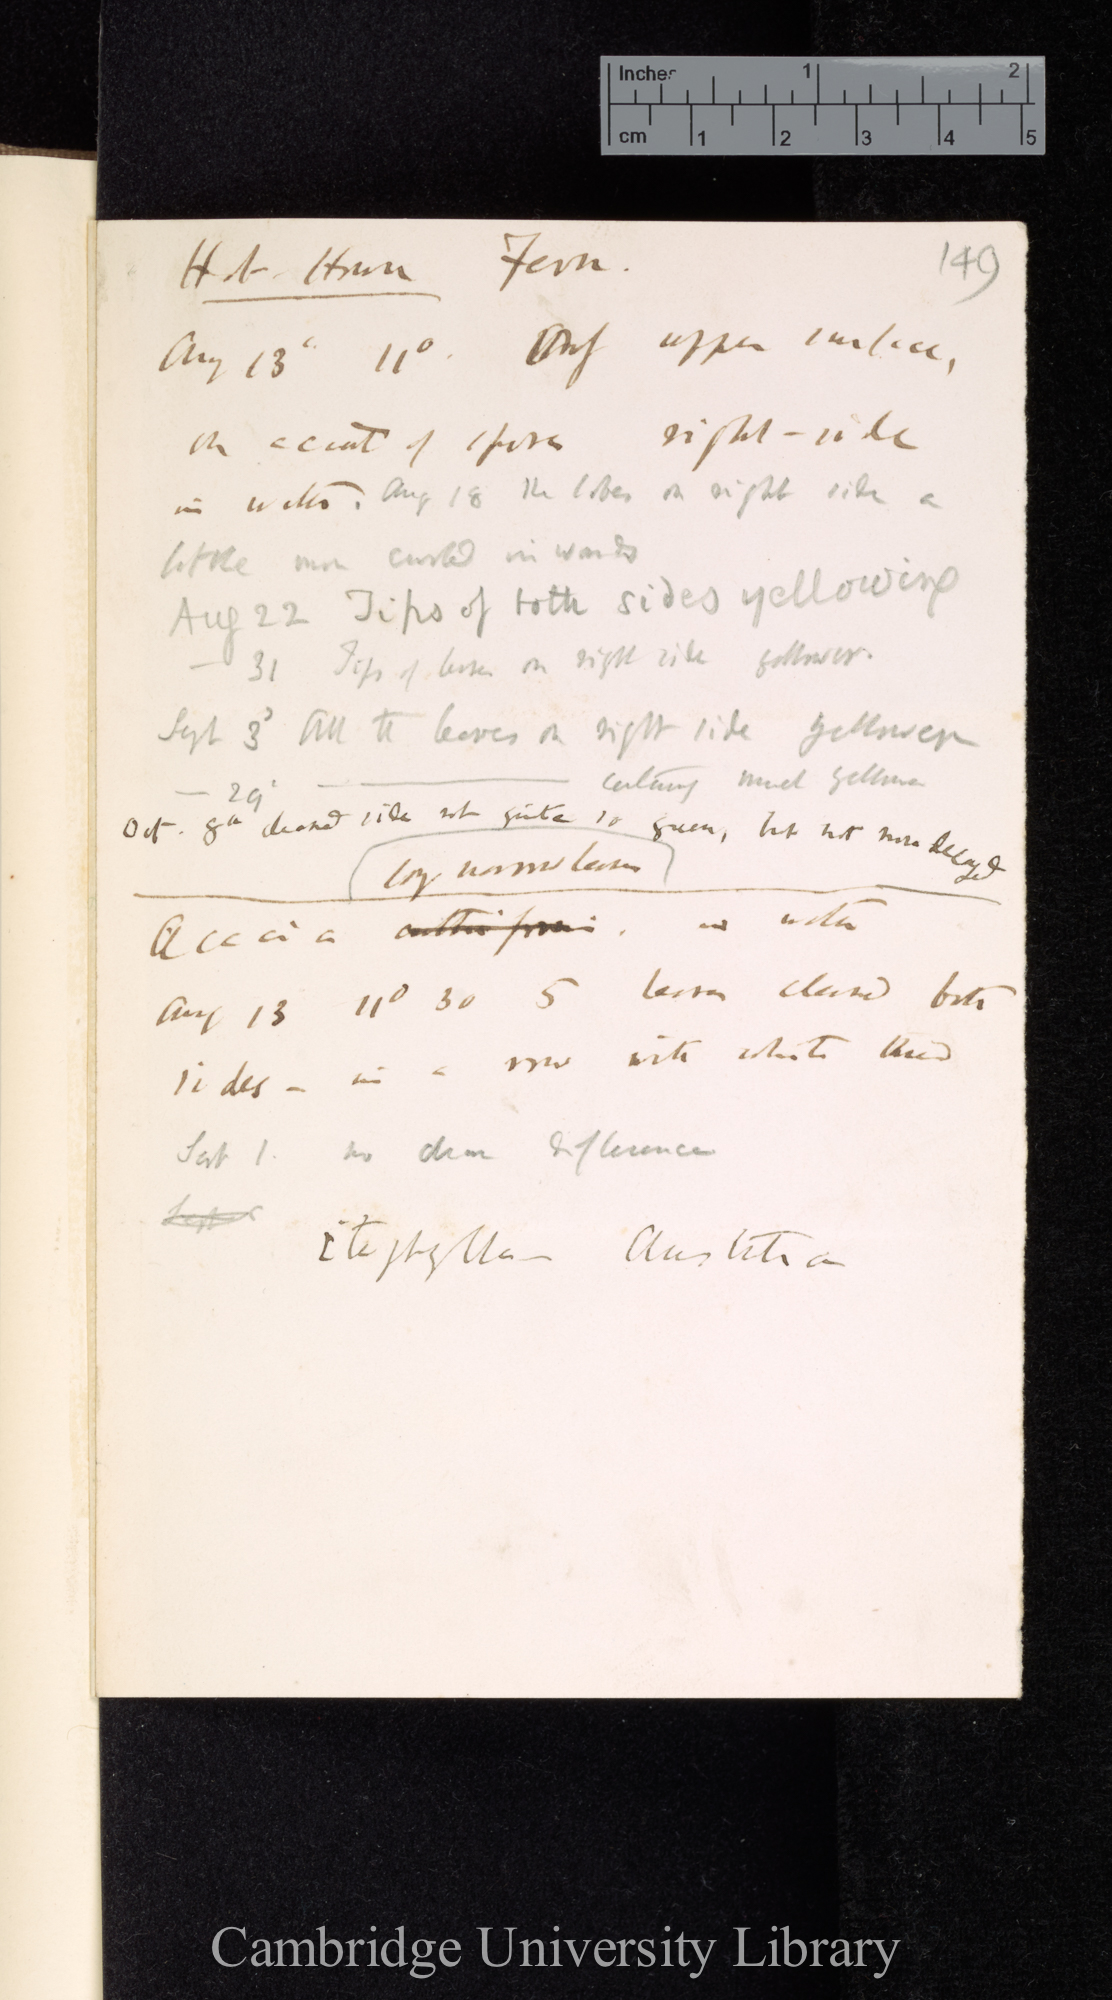 Inches 1 2
cm 1 2 3 4 5
149
Hot-House Fern.
Aug 13th 11°. Only upper surface,
on account of spores right-side
in water. Aug 18 The lobes on right side a
little more curled inwards
Aug 22 Tips of both sides yellowing
— 31 Tips of leaves on right side yellower.
Sept 3d All the leaves on right side yellower
— 29th ———— certainly much yellower
Oct. 8th cleaned side not quite so green, but not more decayed
long narrow leaves
Acacia in water
Aug 13 11° 30 5 leaves cleaned both
sides — in a row with white thread
Sept 1. no clear difference
Cambridge University Library